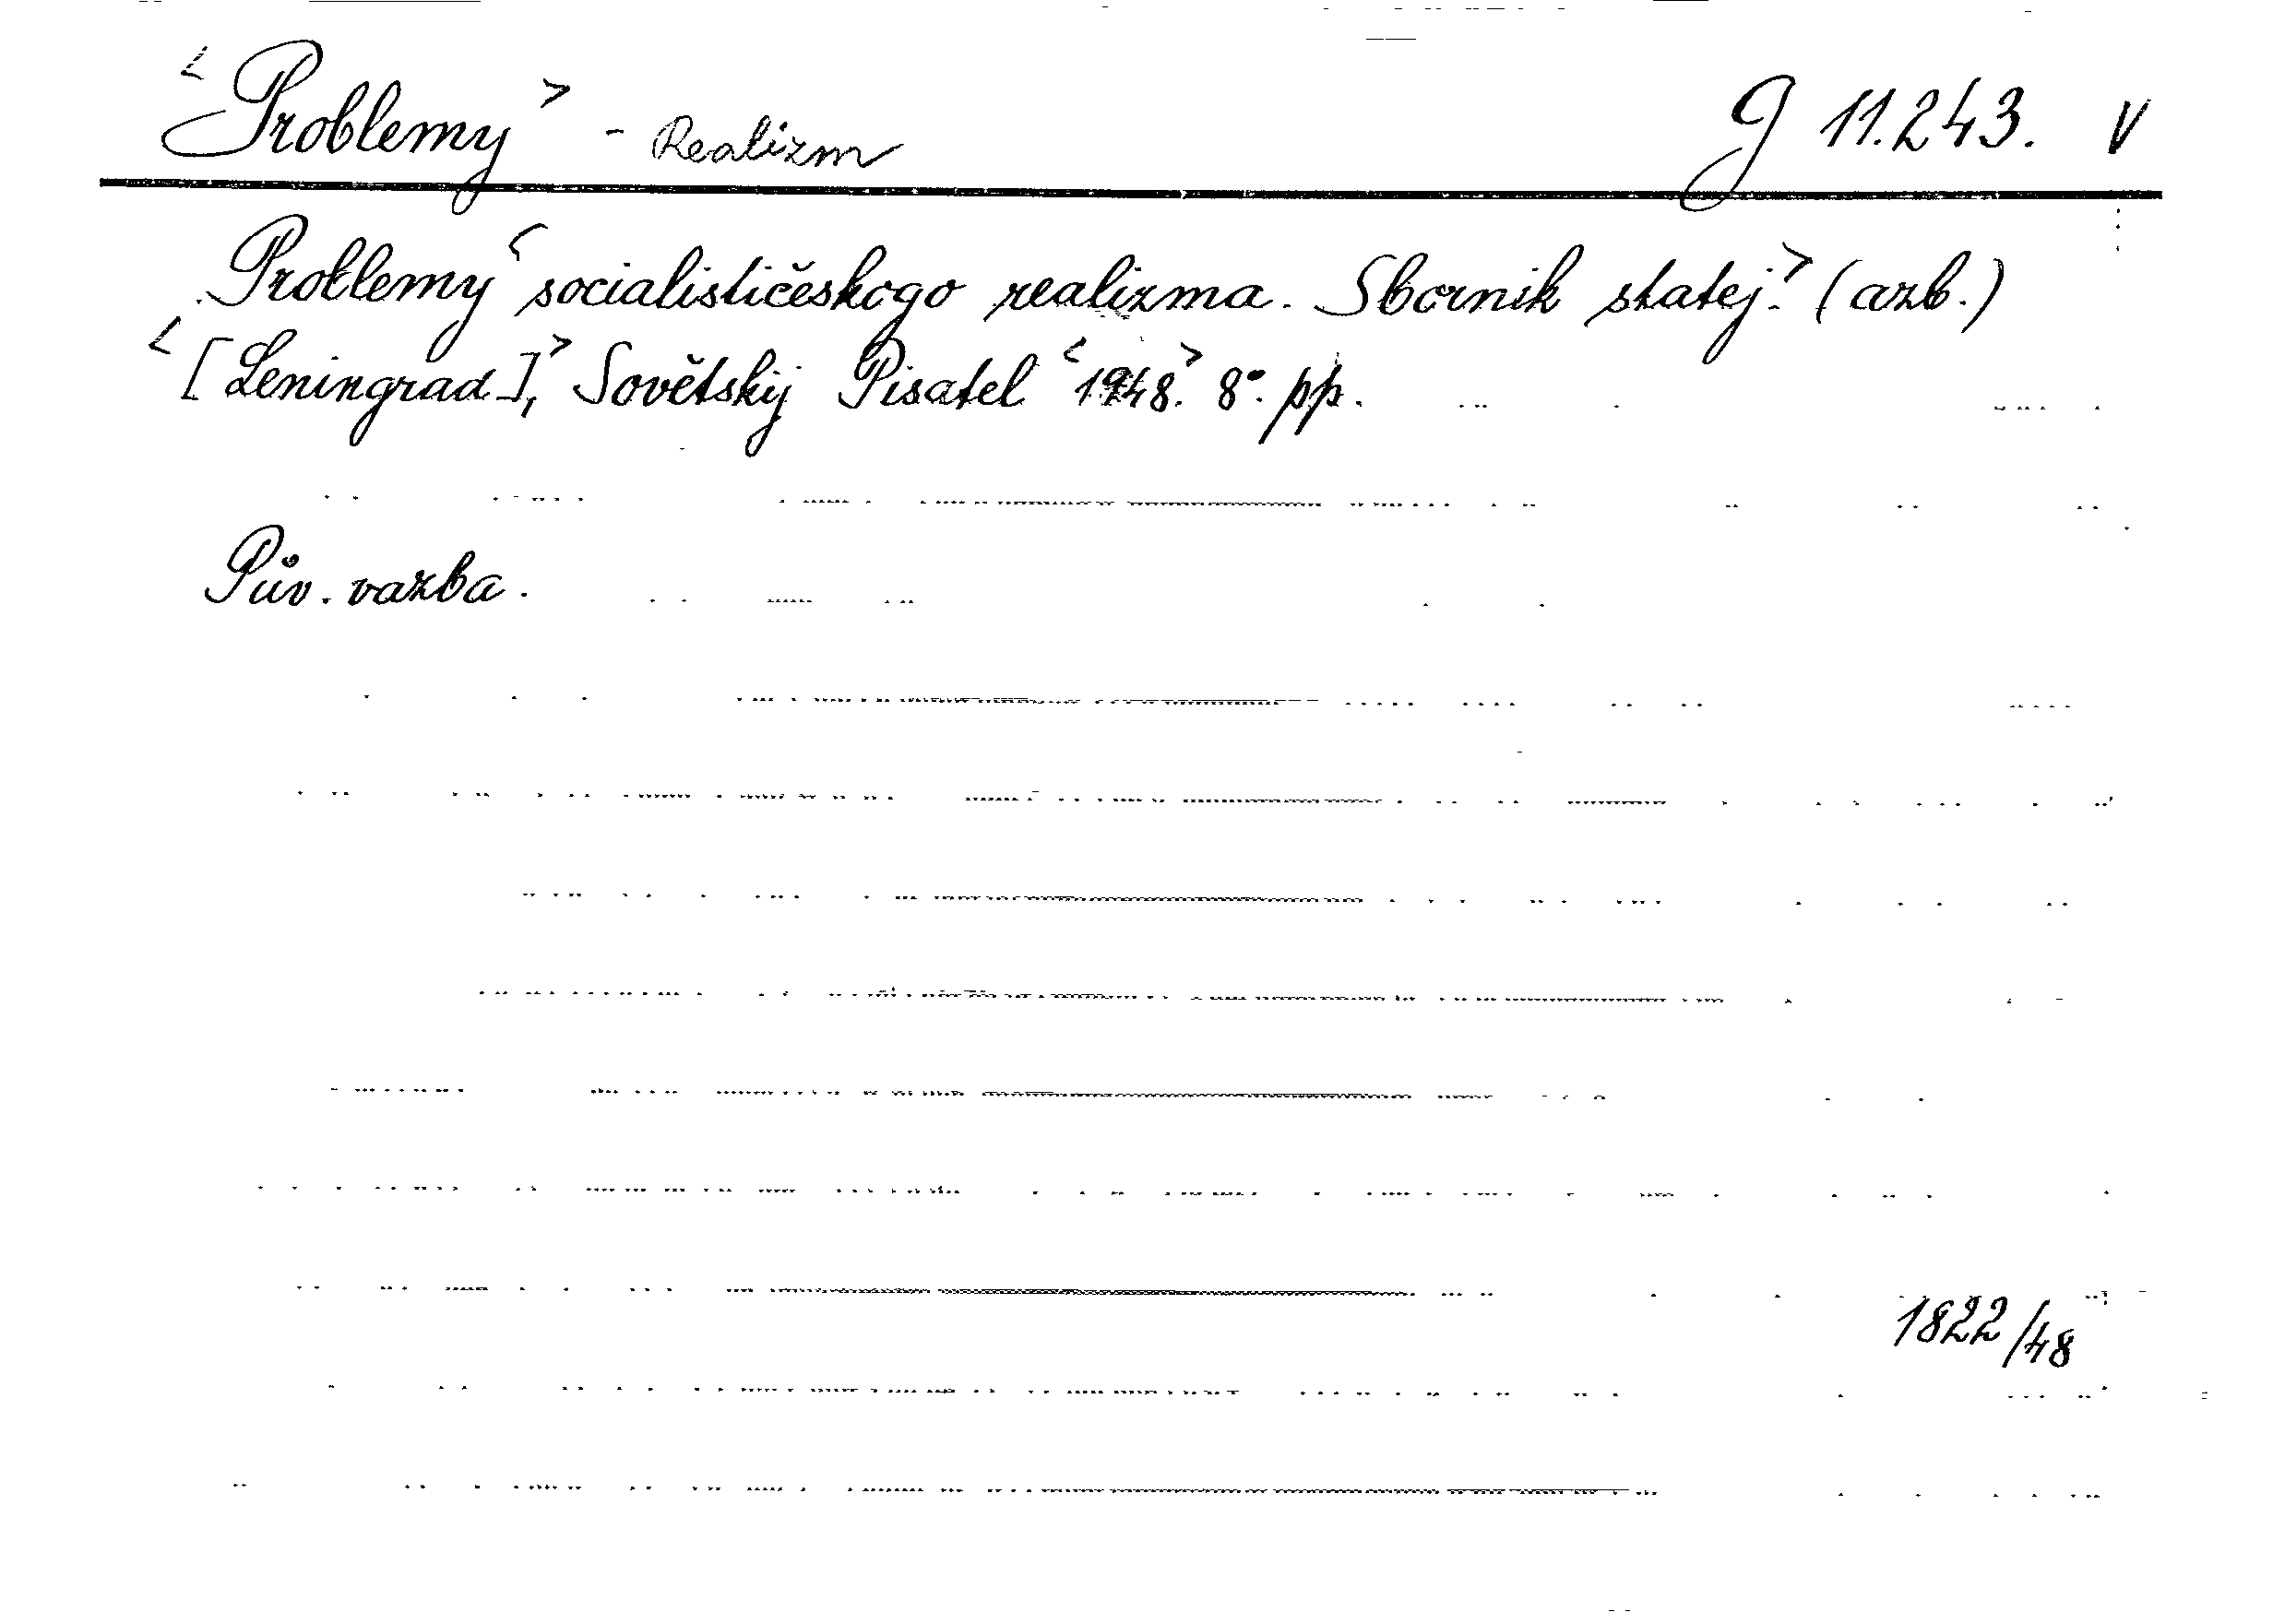 <Problemy> - Realizm g 11.243. V
Problemy <socialističeskogo realizma. Sbornik statej.> (azb.)
<[Leningrad],> Sovětskij Pisatel <1948.> 8°. pp.
Pův. vazba.
1822/48